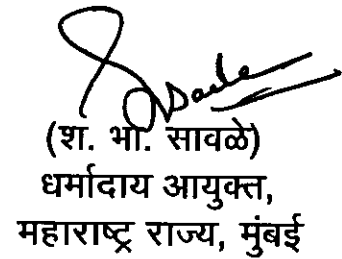 (श. भा. सावळे)
धर्मादाय आयुक्त,
महाराष्ट्र राज्य, मुंबई